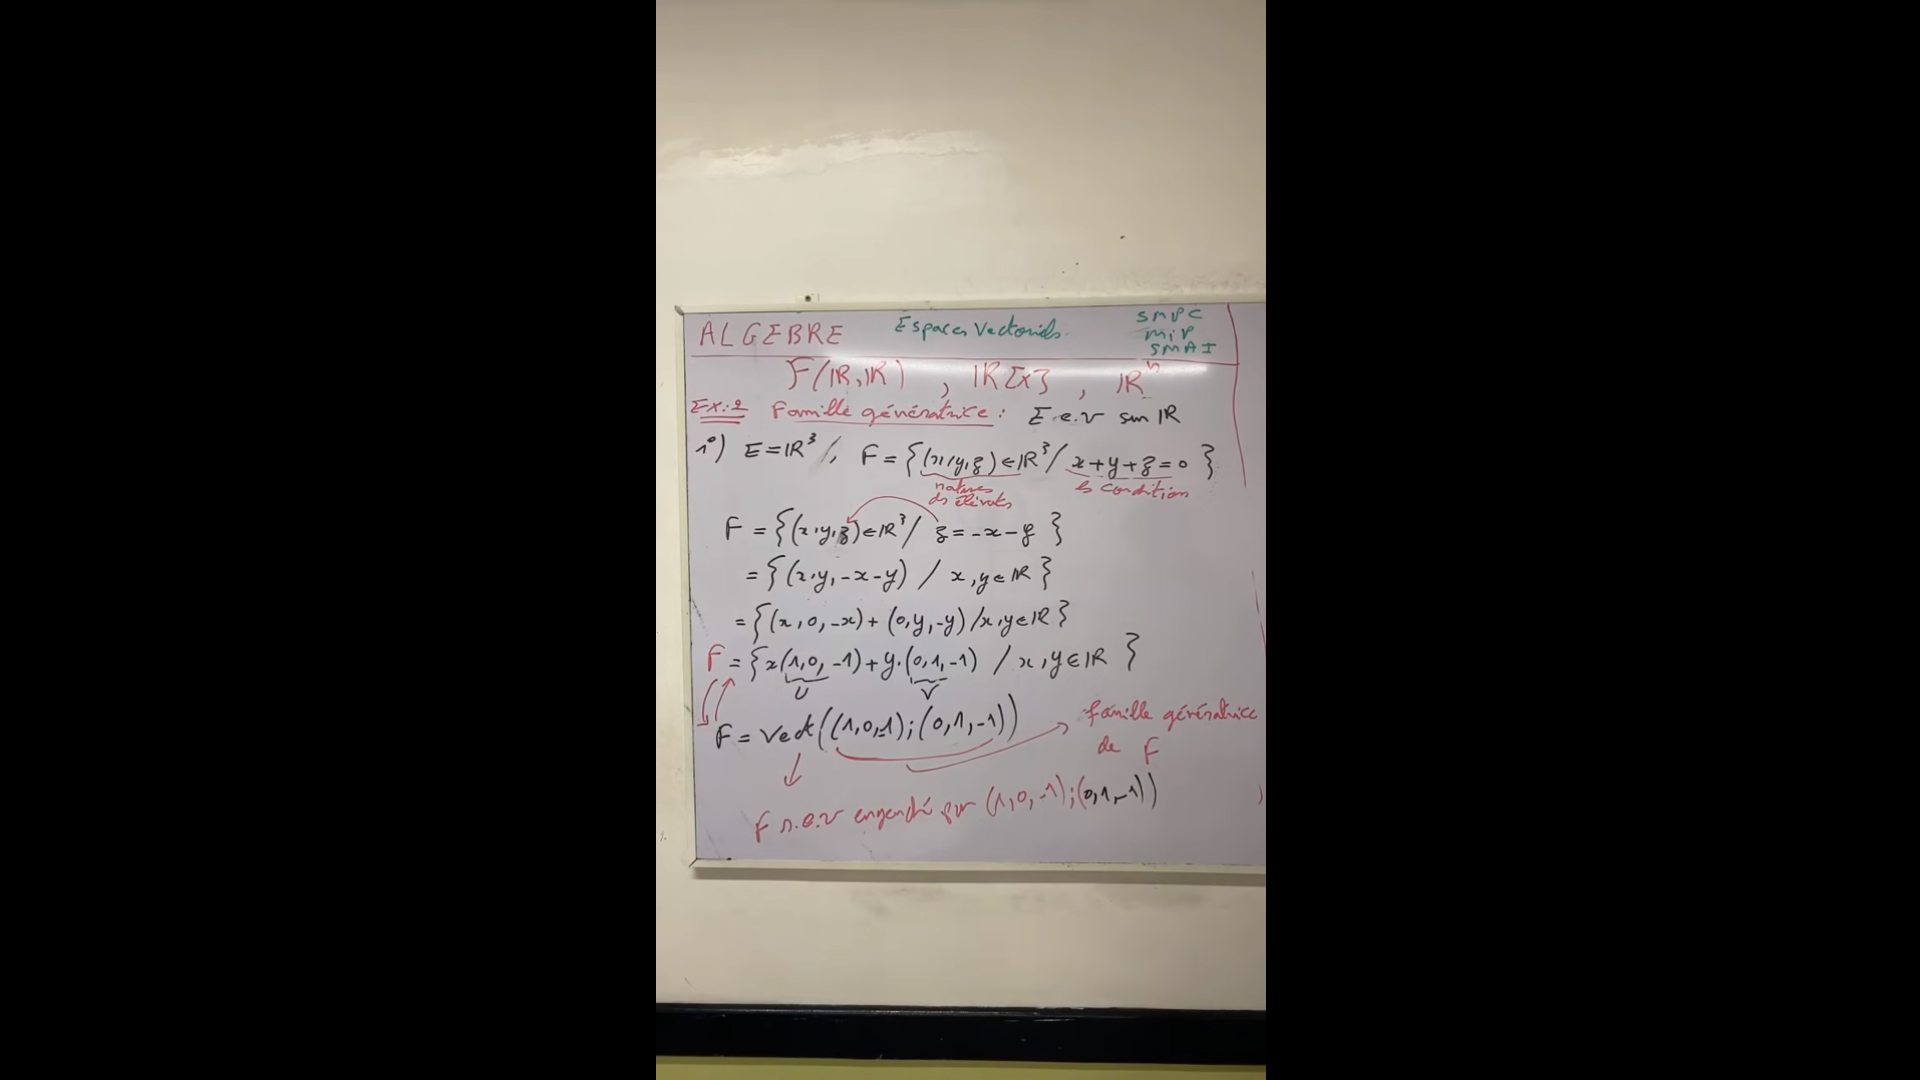 ALGEBRE Espaces Vectoriels SMPC
MIP
SMAI
F(IR,IR) , IR[X] , IR^n
Ex:2 Famille génératrice : E e.v sur IR
1°) E=IR³/, F={(x,y,z)∈IR³/ x+y+z=0}
natures des éléments
les condition
F={(x,y,z)∈IR³/ z=-x-y}
={(x,y,-x-y) / x,y∈IR}
={(x,0,-x)+(0,y,-y)/x,y∈IR}
F={x(1,0,-1)+y.(0,1,-1) / x,y∈IR}
U V
F=Vect((1,0,-1);(0,1,-1)) famille génératrice
de F
F s.e.v engendré par (1,0,-1);(0,1,-1))